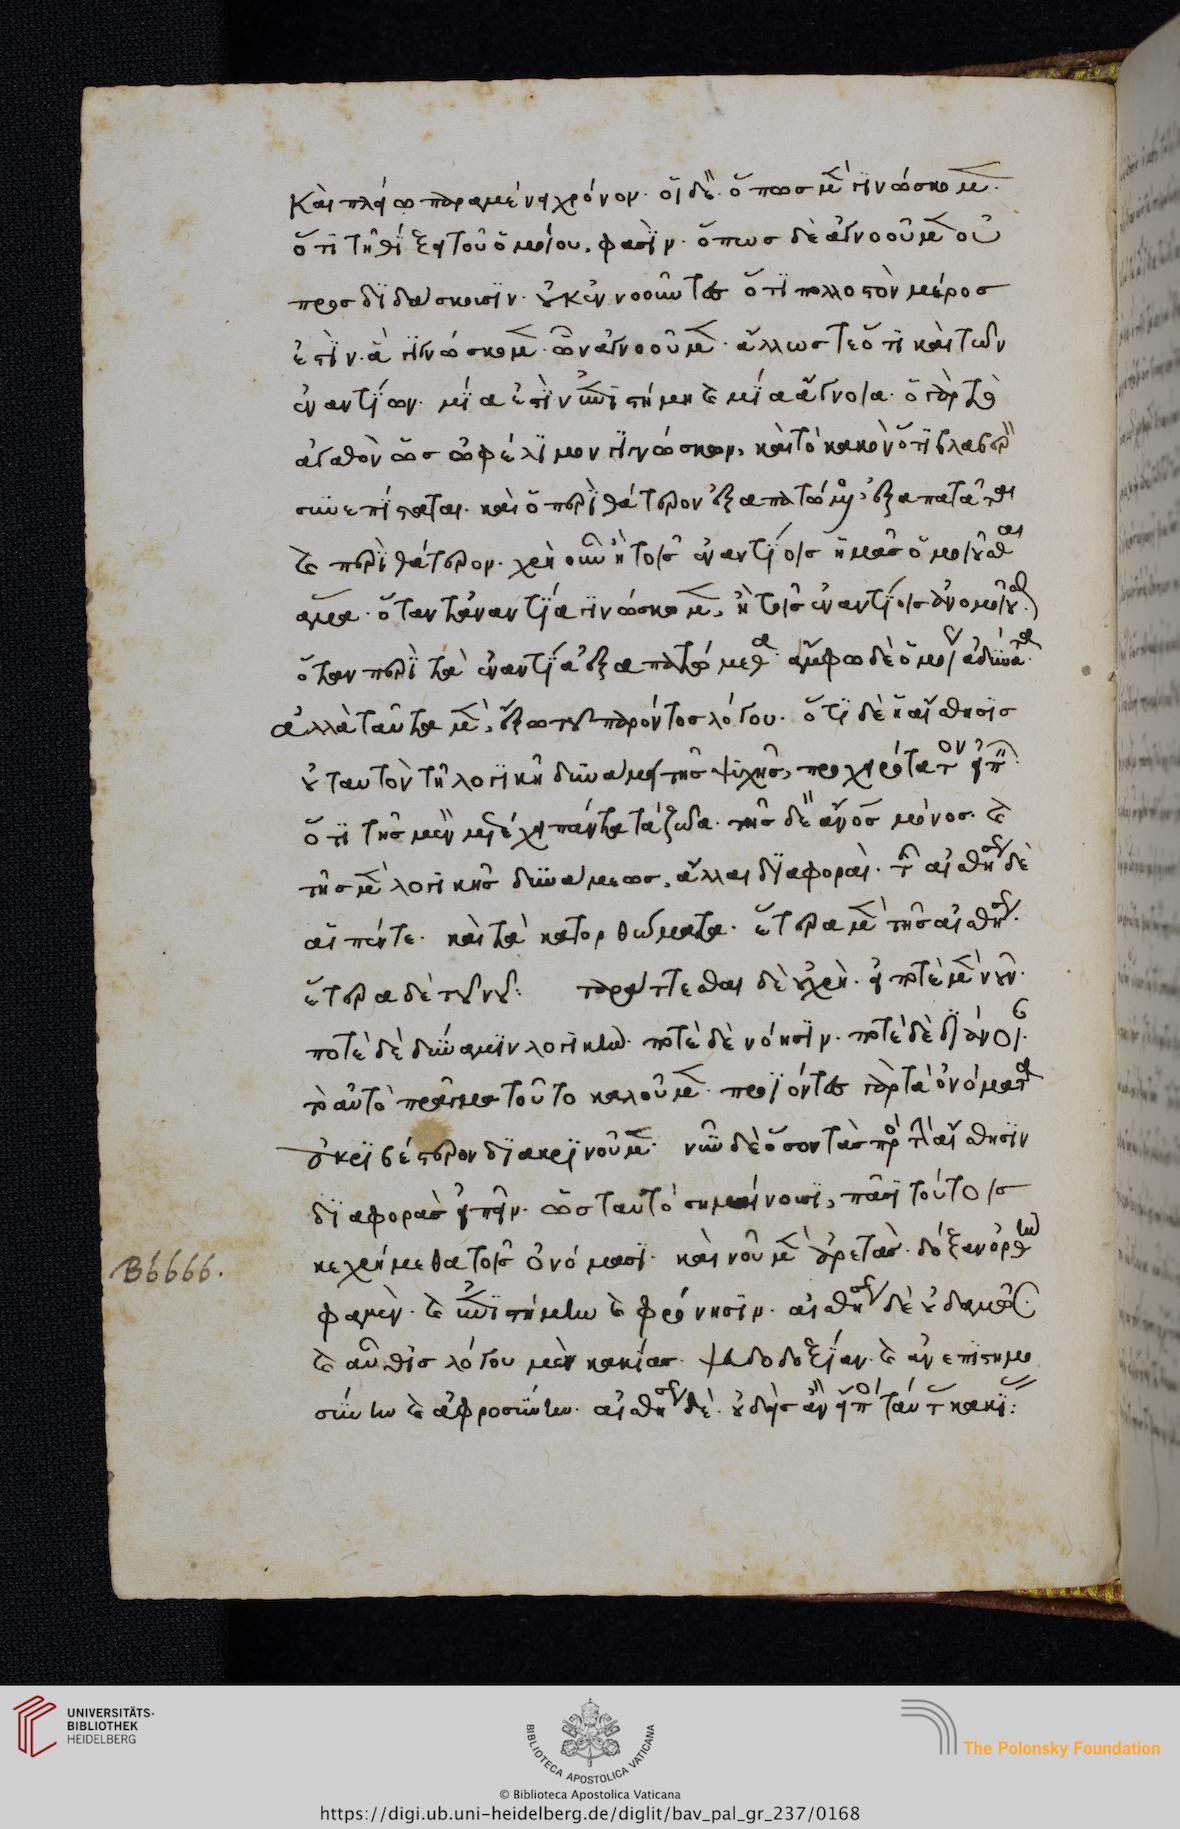 Καὶ πλείω παραμένει χρόνον. οἱ δὲ ὅπως μὲν γινώσκομεν.
ὅτι τῆ θίξει τοῦ ὁμοίου, φασίν. ὅπως δὲ ἀγνοοῦμεν οὐ
προσδιδάσκουσιν. οὐκ ἐννοοῦντες ὅτι πολλοστὸν μέρος
ἐστὶν. ἃ γιγνώσκομεν. ὧν ἀγνοοῦμεν. ἄλλως τε ὅτι καὶ τῶν
ἐναντίων. μία ἐστὶν ἐπιστήμη καὶ μία ἄγνοια. ὁ γὰρ τὸ
ἀγαθὸν ὡς ὠφέλιμον γιγνώσκων, καὶ τὸ κακὸν ὅτι βλαβερὸν
συνεπίσταται. καὶ ὁ περὶ θάτερον ἐξαπατώμενος, ἐξαπατᾶται
καὶ περὶ θάτερον. χρὴ οὖν ἢ τοῖς ἐναντίοις ἡμᾶς ὁμοιοῦσθαι
ἅμα. ὅταν τἀναντία γινώσκομεν, ἢ τοῖς ἐναντίοις ἀνομοιοῦσθαι.
ὅταν περὶ τὰ ἐναντία ἐξαπατώμεθα. ἄμφω δὲ ὁμοῦ ἀδύνατα.
ἀλλὰ ταῦτα μὲν, ἔξω τοῦ παρόντος λόγου. ὅτι δὲ ἡ αἴσθησις
οὐ ταυτὸν τῆ λογικῆ δυνάμει τῆς ψυχῆς, προχειρότατον εἰπεῖν.
ὅτι τῆς μὲν μετέχει πάντα τὰ ζῶα. τῆς δὲ ἄνος μόνος. καὶ
τῆς μὲν λογικῆς δυνάμεως, ἄλλαι διαφοραὶ. τῶν αἰσθήσεων δὲ
αἱ πέντε. καὶ τὰ κατορθώματα. ἕτερα μὲν τῆς αἰσθήσεως.
ἕτερα δὲ τοῦ νοῦ: ταράττεσθαι δὲ οὐ χρὴ. εἰ ποτὲ μὲν νοῦν.
ποτὲ δὲ δύναμιν λογικήν. ποτὲ δὲ νόησιν. ποτὲ δὲ διάνοιαν.
τὸ αὐτὸ πρᾶγμα τοῦτο καλοῦμεν. προϊόντες γὰρ τὰ ὀνόματα
ἀκριβέστερον διακρινοῦμεν. νῦν δὲ ὅσον τὰς πρὸς τὴν αἴσθησιν
διαφορὰς εἰπεῖν. ὡς ταὐτὸ σημαίνουσι, πᾶσι τούτοις
κεχρήμεθα τοῖς ὀνόμασι. καὶ νοῦ μὲν ἀρετὰς. δόξαν ὀρθὴν
φαμὲν. καὶ ἐπιστήμην καὶ φρόνησιν. αἰσθήσεως δὲ οὐδαμῶς
καὶ αὖθις λόγου μὲν κακίας. ψευδοδοξίαν. καὶ ἀνεπιστημο
σύνην καὶ ἀφροσύνην. αἰσθήσεως δὲ. οὐδεὶς ἂν εἴποι ταύτας κακίας:
B6666.
UNIVERSITÄTS-
BIBLIOTHEK
HEIDELBERG
BIBLIOTECA APOSTOLICA VATICANA
The Polonsky Foundation
© Biblioteca Apostolica Vaticana
https://digi.ub.uni-heidelberg.de/diglit/bav_pal_gr_237/0168